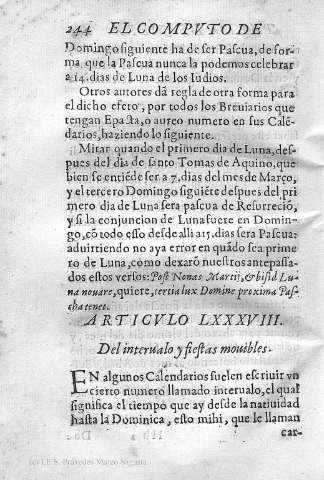 244 EL COMPVTO DE
Domingo siguiente ha de ser Pascua, de for-
ma que la Pascua nunca la podemos celebrar
a 14. dias de Luna de los Iudios.
Otros autores dã regla de otra forma para
el dicho efeto, por todos los Breuiarios que
tengan Epasta, o aureo numero en sus Calẽ-
darios, haziendo lo siguiente.
Mirar quando el primero dia de Luna, des-
pues del dia de santo Tomas de Aquino, que
bien se entiẽde ser a 7. dias del mes de Março,
y el tercero Domingo siguiẽte despues del pri
mero dia de Luna sera pascua de Resurreciõ,
y si la conjuncion de Luna fuere en Domin-
go, cõ todo esso desde alli a 15. dias sera Pascua:
aduirtiendo no aya error en quãdo sea prime
ro de Luna, como dexarõ nuestros antepassa-
dos estos versos: Post Nonas Martij, & bisid Lu-
na nouare, quiere, tertia lux Domine proxima Pas-
cha tenet.
ARTICVLO LXXXVIII.
Del interualo y fiestas mouibles.
EN algunos Calendarios suelen escriuir vn
cierto numero llamado interualo, el qual
significa el tiempo que ay desde la natiuidad
hasta la Dominica, esto mihi, que le llaman
car-
(c) I.E.S. Práxedes Mateo Sagasta